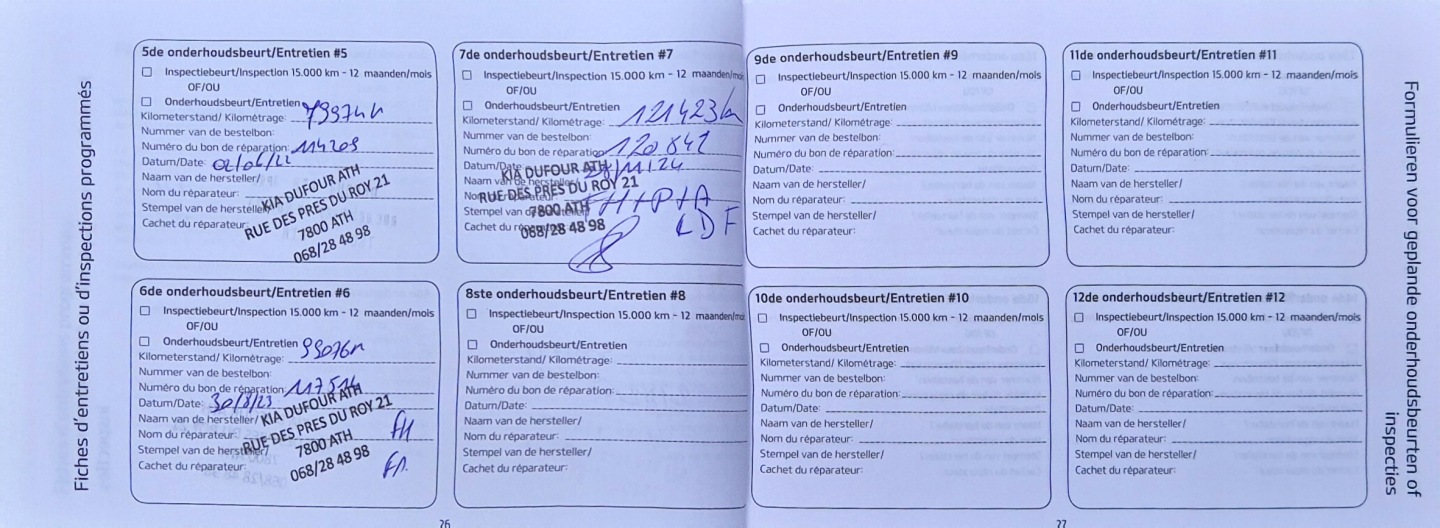 Fiches d'entretiens ou d'inspections programmés
5de onderhoudsbeurt/Entretien #5
Inspectiebeurt/Inspection 15.000 km - 12 maanden/mois
OF/OU
Onderhoudsbeurt/Entretien
Kilometerstand/ Kilométrage:
Nummer van de bestelbon:
Numéro du bon de réparation: 114209
Datum/Date: 02/06/22
Naam van de hersteller/
Nom du réparateur:
Stempel van de hersteller/
Cachet du réparateur:
KIA DUFOUR ATH
RUE DES PRES DU ROY 21
7800 ATH
068/28 48 98
6de onderhoudsbeurt/Entretien #6
Inspectiebeurt/Inspection 15.000 km - 12 maanden/mois
OF/OU
Onderhoudsbeurt/Entretien
Kilometerstand/ Kilométrage: 99076
Nummer van de bestelbon:
Numéro du bon de réparation:
Datum/Date: 30/8/23
Naam van de hersteller/
Nom du réparateur:
Stempel van de hersteller/
Cachet du réparateur:
KIA DUFOUR ATH
RUE DES PRES DU ROY 21
7800 ATH
068/28 48 98
7de onderhoudsbeurt/Entretien #7
Inspectiebeurt/Inspection 15.000 km - 12 maanden/mo
OF/OU
Onderhoudsbeurt/Entretien
Kilometerstand/ Kilométrage: 121423
Nummer van de bestelbon:
Numéro du bon de réparation 120841
Datum/Date
Naam van de hersteller/
Stempel van de
Cachet du
KIA DUFOUR ATH
RUE DES PRES DU ROY 21
7800 ATH
068/28 48 98
FH+P+A
LDF
8ste onderhoudsbeurt/Entretien #8
Inspectiebeurt/Inspection 15.000 km - 12 maanden/mo
OF/OU
Onderhoudsbeurt/Entretien
Kilometerstand/ Kilométrage:
Nummer van de bestelbon:
Numéro du bon de réparation:
Datum/Date:
Naam van de hersteller/
Nom du réparateur:
Stempel van de hersteller/
Cachet du réparateur:
26
9de onderhoudsbeurt/Entretien #9
Inspectiebeurt/Inspection 15.000 km - 12 maanden/mois
OF/OU
Onderhoudsbeurt/Entretien
Kilometerstand/ Kilométrage:
Nummer van de bestelbon:
Numéro du bon de réparation:
Datum/Date:
Naam van de hersteller/
Nom du réparateur:
Stempel van de hersteller/
Cachet du réparateur:
10de onderhoudsbeurt/Entretien #10
Inspectiebeurt/Inspection 15.000 km - 12 maanden/mois
OF/OU
Onderhoudsbeurt/Entretien
Kilometerstand/ Kilométrage:
Nummer van de bestelbon:
Numéro du bon de réparation:
Datum/Date:
Naam van de hersteller/
Nom du réparateur:
Stempel van de hersteller/
Cachet du réparateur:
11de onderhoudsbeurt/Entretien #11
Inspectiebeurt/Inspection 15.000 km - 12 maanden/mois
OF/OU
Onderhoudsbeurt/Entretien
Kilometerstand/ Kilométrage:
Nummer van de bestelbon:
Numéro du bon de réparation:
Datum/Date:
Naam van de hersteller/
Nom du réparateur:
Stempel van de hersteller/
Cachet du réparateur:
12de onderhoudsbeurt/Entretien #12
Inspectiebeurt/Inspection 15.000 km - 12 maanden/mois
OF/OU
Onderhoudsbeurt/Entretien
Kilometerstand/ Kilométrage:
Nummer van de bestelbon:
Numéro du bon de réparation:
Datum/Date:
Naam van de hersteller/
Nom du réparateur:
Stempel van de hersteller/
Cachet du réparateur:
27
Formulieren voor geplande onderhoudsbeurten of
inspecties